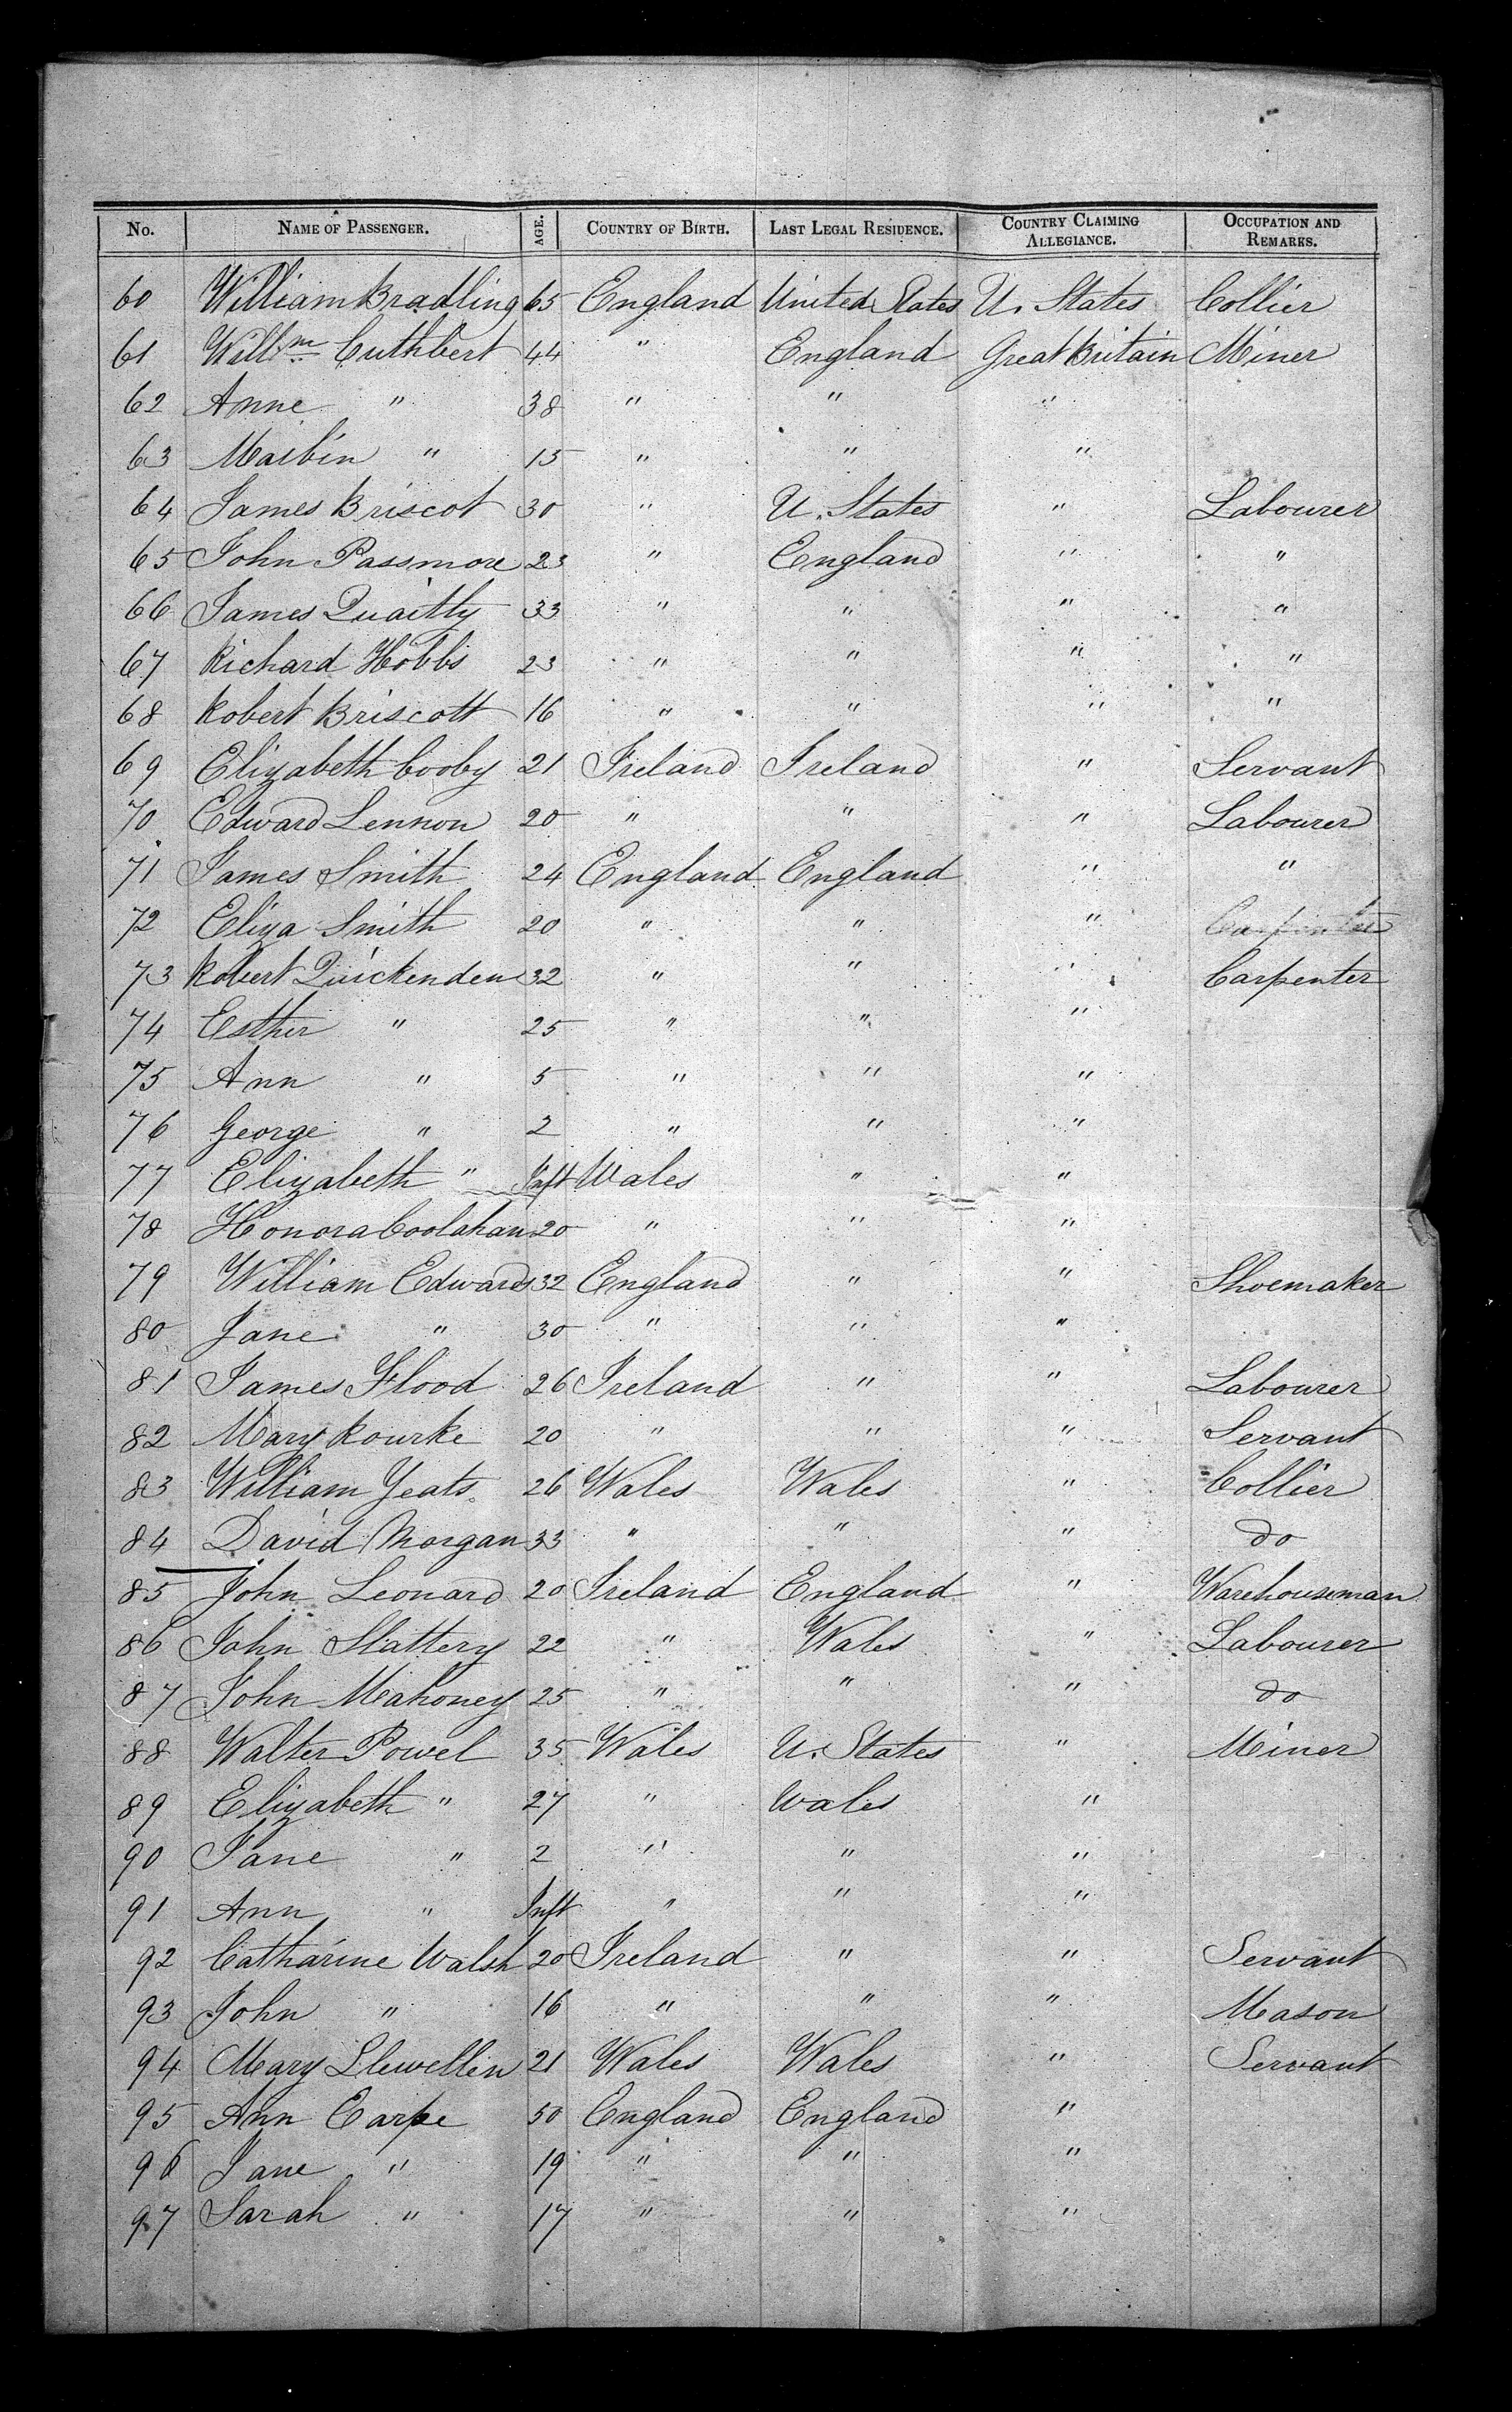 No. NAME OF PASSENGER. AGE. COUNTRY OF BIRTH. LAST LEGAL RESIDENCE. COUNTRY CLAIMING ALLEGIANCE. OCCUPATION AND REMARKS.
60 William Bradling 65 England United States U. States Collier
61 Willm Cuthbert 44 " England Great Britain Miner
62 Anne " 38 " " "
63 Maibin " 15 " " "
64 James Briscot 30 " U. States " Labourer
65 John Passmore 23 " England " "
66 James Quaitly 33 " " " "
67 Richard Hobbs 23 " " " "
68 Robert Briscott 16 " " " "
69 Elizabeth Cooby 21 Ireland Ireland " Servant
70 Edward Lennon 20 " " " Labourer
71 James Smith 24 England England " "
72 Eliza Smith 20 " " " Carpenter
73 Robert Quickenden 32 " " " Carpenter
74 Esther " 25 " " "
75 Ann " 5 " " "
76 George " 2 " " "
77 Elizabeth " Inft Wales " "
78 Honora Coolahan 20 " " "
79 William Edwards 32 England " " Shoemaker
80 Jane " 30 " " "
81 James Flood 26 Ireland " " Labourer
82 Mary Rourke 20 " " " Servant
83 William Yeats 26 Wales Wales " Collier
84 David Morgan 33 " " " do
85 John Leonard 20 Ireland England " Warehouseman
86 John Slattery 22 " Wales " Labourer
87 John Mahoney 25 " " " do
88 Walter Powel 35 Wales U. States " Miner
89 Elizabeth " 27 " Wales "
90 Jane " 2 " " "
91 Ann " Inft " " "
92 Catharine Walsh 20 Ireland " " Servant
93 John " 16 " " " Mason
94 Mary Llewellin 21 Wales Wales " Servant
95 Ann Earpe 50 England England "
96 Jane " 19 " " "
97 Sarah " 17 " " "